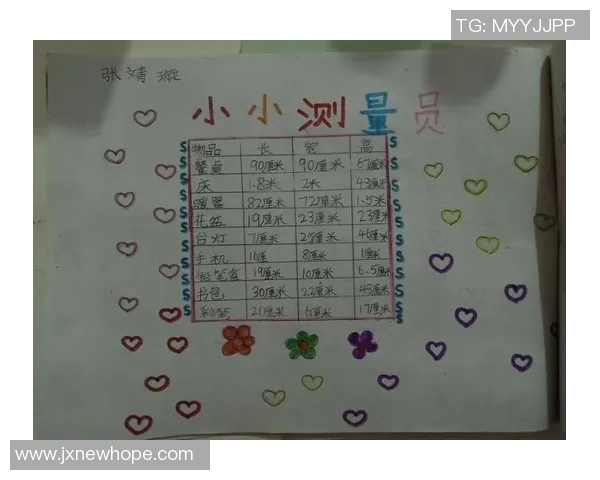 TG: MYYJJPP
张婧璇
小小测量员
物品 长 宽 高
餐桌 90厘米 90厘米 67厘米
床 1.8米 2米 43厘米
暖器 82厘米 72厘米 1.5米
花盆 19厘米 23厘米 23厘米
台灯 7厘米 25厘米 46厘米
手机 16厘 8厘米 1厘米
铅笔盒 19厘米 10厘米 6.5厘米
书包 30厘米 22厘米 43厘米
彩笔 21厘米 6厘米 17厘米
www.jxnewhope.com